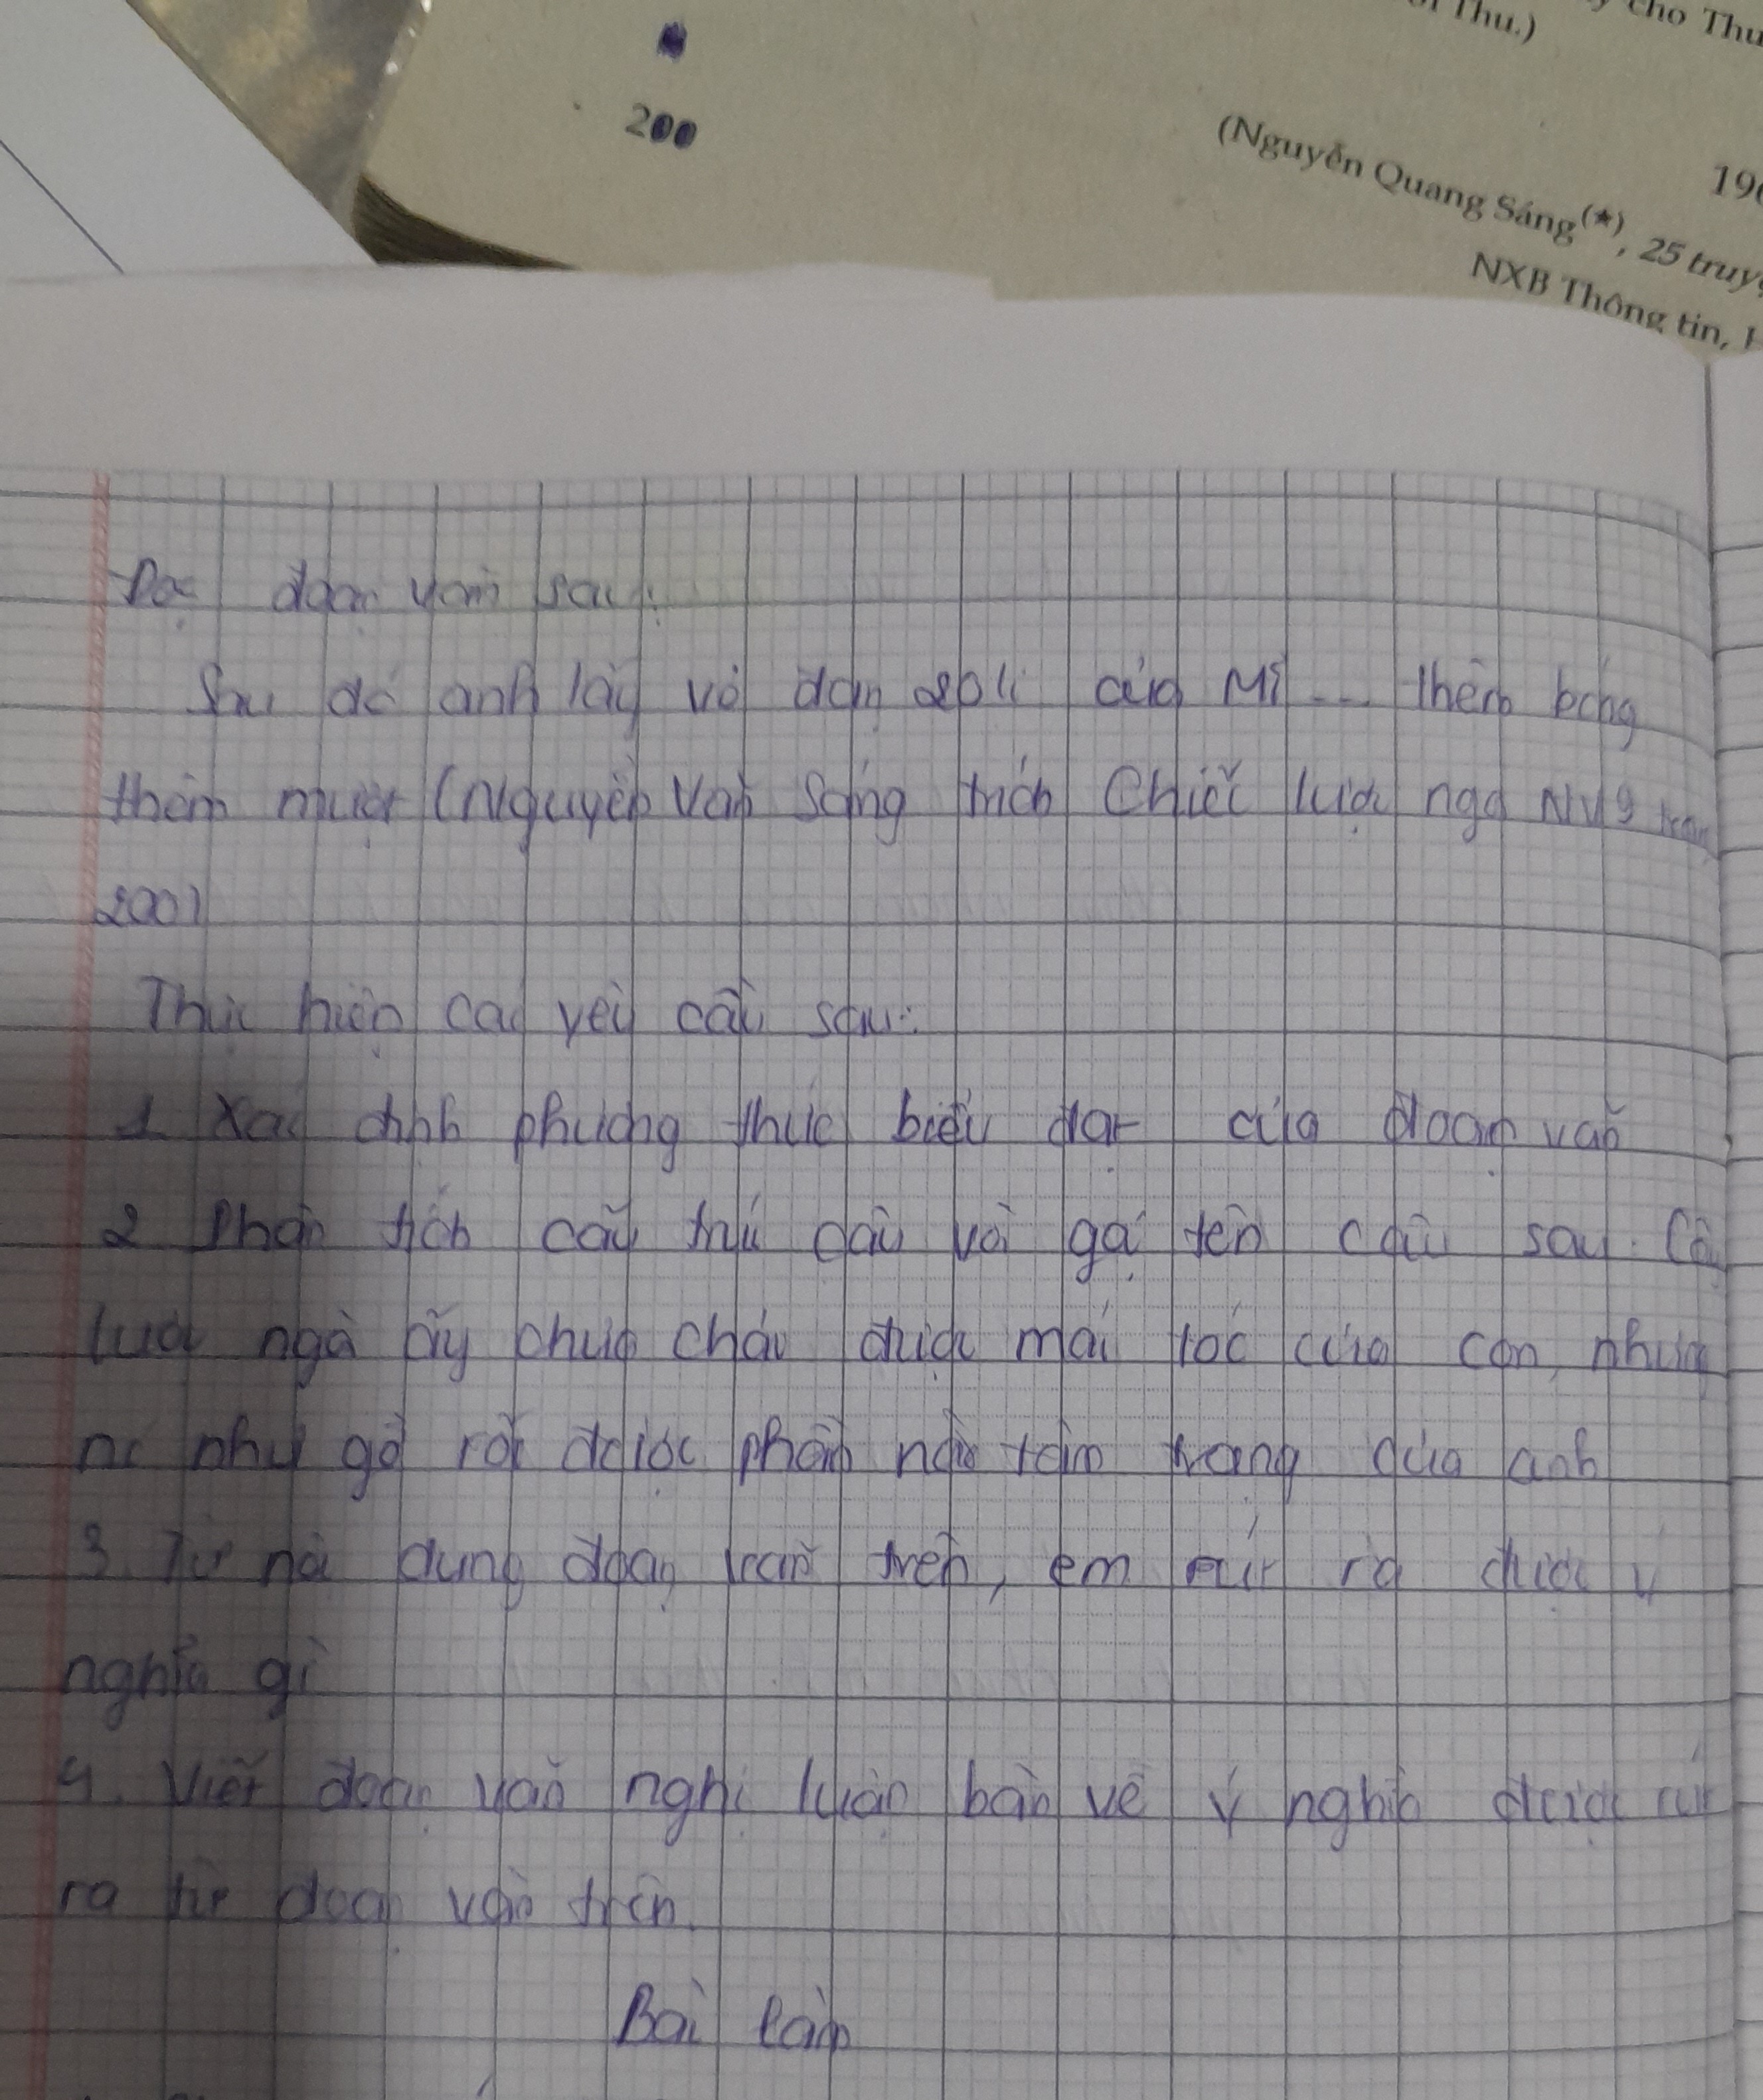 ơi Thu.)
cho Thu
200
(Nguyễn Quang Sáng(★), 25 truy
NXB Thông tin, H
Đọc đoạn văn sau:
Sau đó anh lấy vỏ đạn 20 li của Mĩ ... thêm bóng
thêm mượt (Nguyễn Văn Sáng trích Chiếc lược ngà NV9 tran
200)
Thực hiện các yêu cầu sau:
1 Xác định phương thức biểu đạt của đoạn văn
2 Phân tích cấu trúc câu và gọi tên câu sau. Câ
lược ngà ấy chưa chải được mái tóc của con, nhưng
nó như gỡ rối được phần nào tâm trạng của anh
3. Từ nội dung đoạn văn trên, em rút ra được ý
nghĩa gì
4. Viết đoạn văn nghị luận bàn về ý nghĩa được rút
ra từ đoạn văn trên.
Bài làm